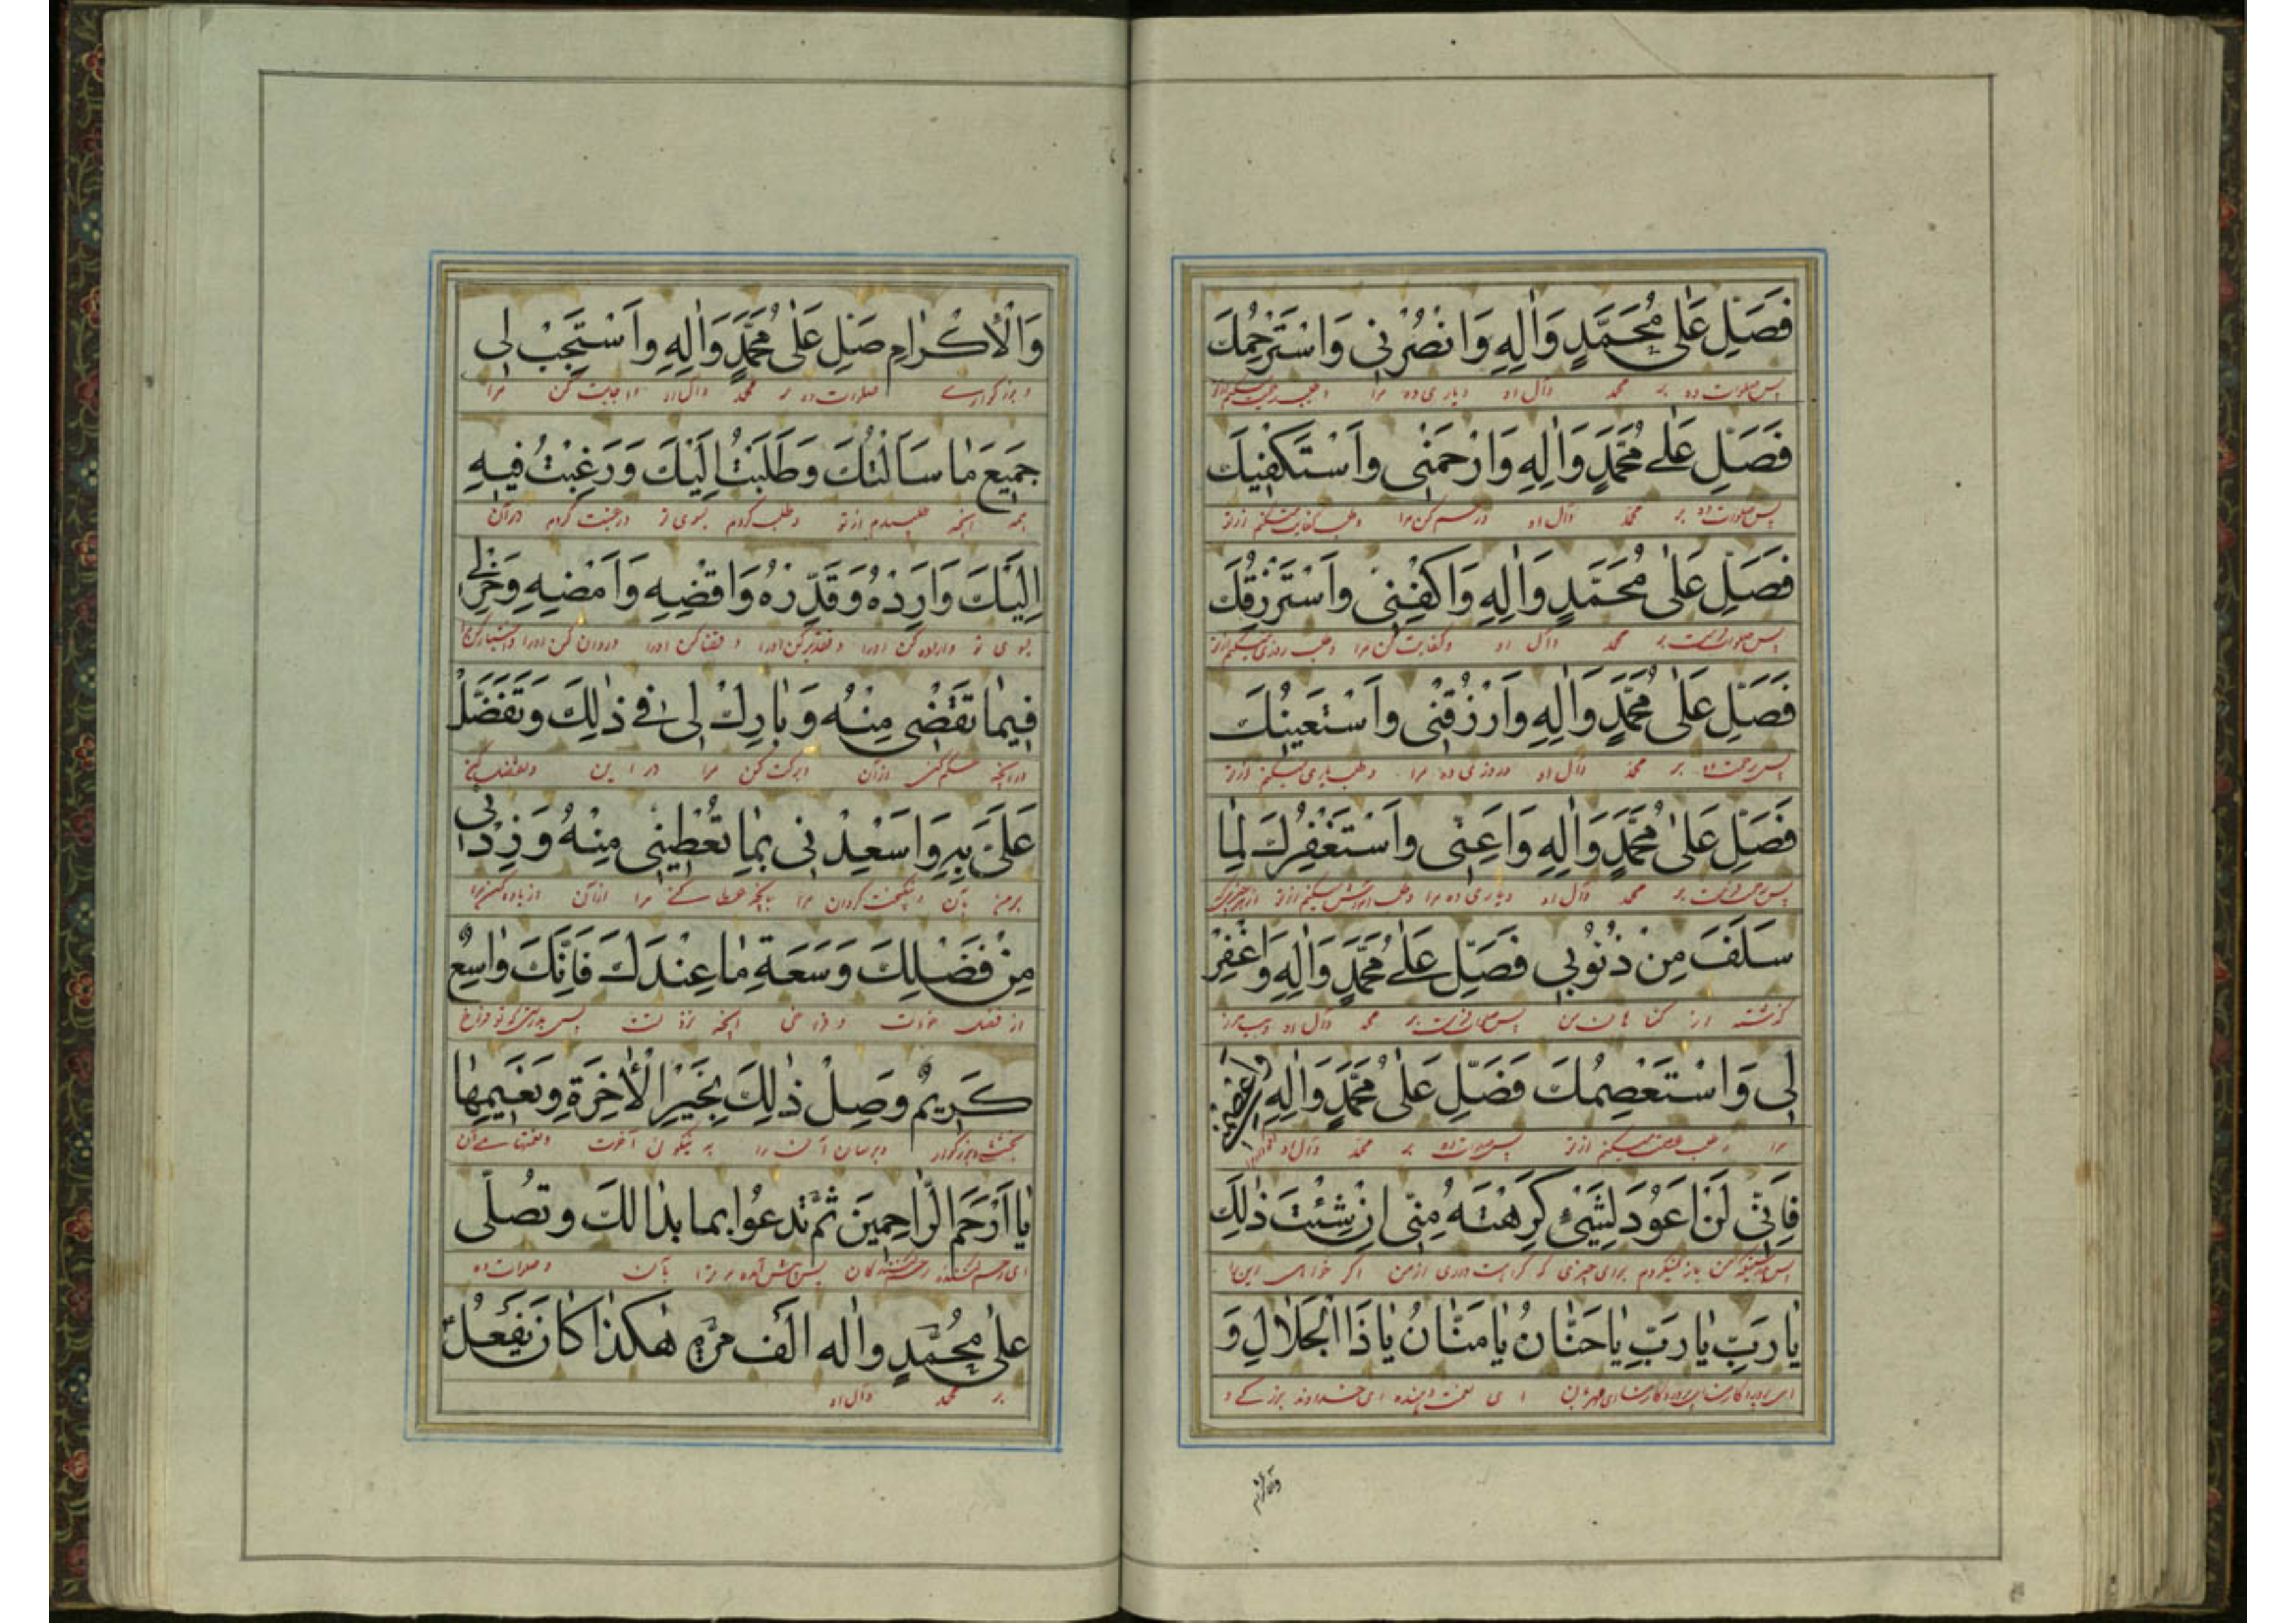 فَصَلِّ عَلٰى مُحَمَّدٍ وَاٰلِهِ وَانْصُرْنى وَاسْتَرْحِمُكَ
پس صلوات ده بر محمد وآل او ویاری ده مرا
فَصَلِّ عَلٰے مُحَمَّدٍ وَاٰلِهِ وَارْحَمْنى وَاَسْتَكْفيكَ
پس صلوات ده بر محمد وآل او ورحم کن مرا وطلب کفایت میکنم ازتو
فَصَلِّ عَلٰى مُحَمَّدٍ وَاٰلِهِ وَاكْفِنى وَاَسْتَرْزِقُكَ
پس صلوات بر محمد وآل او وکفایت کن مرا وطلب روزی میکنم ازتو
فَصَلِّ عَلٰى مُحَمَّدٍ وَاٰلِهِ وَارْزُقْنى وَاَسْتَعينُكَ
پس رحمت ده بر محمد وآل او وروزی ده مرا وطلب یاری میکنم ازتو
فَصَلِّ عَلٰى مُحَمَّدٍ وَاٰلِهِ وَاَعِنّى وَاَسْتَغْفِرُكَ لِمٰا
بر محمد وآل او ویاری ده مرا وطلب آمرزش میکنم ازتو
سَلَفَ مِنْ ذُنُوبى فَصَلِّ عَلٰے مُحَمَّدٍ وَاٰلِهِ وَاغْفِرْ
گذشته از گناهان من بر محمد وآل او
لى وَاسْتَعْصِمُكَ فَصَلِّ عَلٰى مُحَمَّدٍ وَاٰلِهِ وَاعْصِمْنى
مرا وطلب عصمت میکنم ازتو پس صلوات ده بر محمد وآل او
فَاِنّى لَنْ اَعُودَ لِشَىْءٍ كَرِهْتَهُ مِنّى اِنْ شِئْتَ ذٰلِكَ
باز نمیگردم برای چیزی که کراهت داری ازمن اگر خواهی این را
يٰا رَبِّ يٰا رَبِّ يٰا حَنّٰانُ يٰا مَنّٰانُ يٰا ذَا الْجَلٰالِ وَ
ای نعمت دهنده ای خداوند بزرگے و
والاکرام
وَالْاِكْرٰامِ صَلِّ عَلٰى مُحَمَّدٍ وَاٰلِهِ وَاَسْتَجِبْ لى
وبزرگوارے صلوات ده بر محمد وآل او واجابت کن مرا
جَميعَ مٰا سَاَلْتُكَ وَطَلَبْتُ اِلَيْكَ وَرَغِبْتُ فيهِ
همه آنچه طلبیدم ازتو وطلب کردم بسوی تو ورغبت کردم درآن
اِلَيْكَ وَاَرِدْهُ وَقَدِّرْهُ وَاقْضِهِ وَاَمْضِهِ وَخِرْ لے
بسوی تو واراده کن اورا وتقدیر کن اورا وقضا کن اورا وروان کن اورا
فيمٰا تَقْضى مِنْهُ وَبٰارِكْ لى فے ذٰلِكَ وَتَفَضَّلْ
درآنچه حکم کنی ازآن وبرکت کن مرا در این وتفضل کنی
عَلَىَّ بِهِ وَاسَعْدِنى بِمٰا تُعْطينى مِنْهُ وَزِدْنى
برمن بآن ونیکبخت گردان مرا بآنچه عطا کنے مرا ازآن
مِنْ فَضْلِكَ وَسَعَةِ مٰا عِنْدَكَ فَاِنَّكَ وٰاسِعٌ
از فضل خودت وفراخی آنچه نزد تست
كَريمٌ وَصِلْ ذٰلِكَ بِخَيْرِ الْاٰخِرَةِ وَنَعيمِهٰا
وبرسان آن را به نیکوئی آخرت
يٰا اَرْحَمَ الرّٰاحِمينَ ثُمَّ تدعُوا بما بذا لكَ وتُصلّى
ای رحم کننده رحم کنندگان بآن وصلوات ده
علٰى مُحُمَّدٍ واٰله الَف مرّة هٰكذٰا كٰانَ يَفْعَلُ
بر محمد وآل او